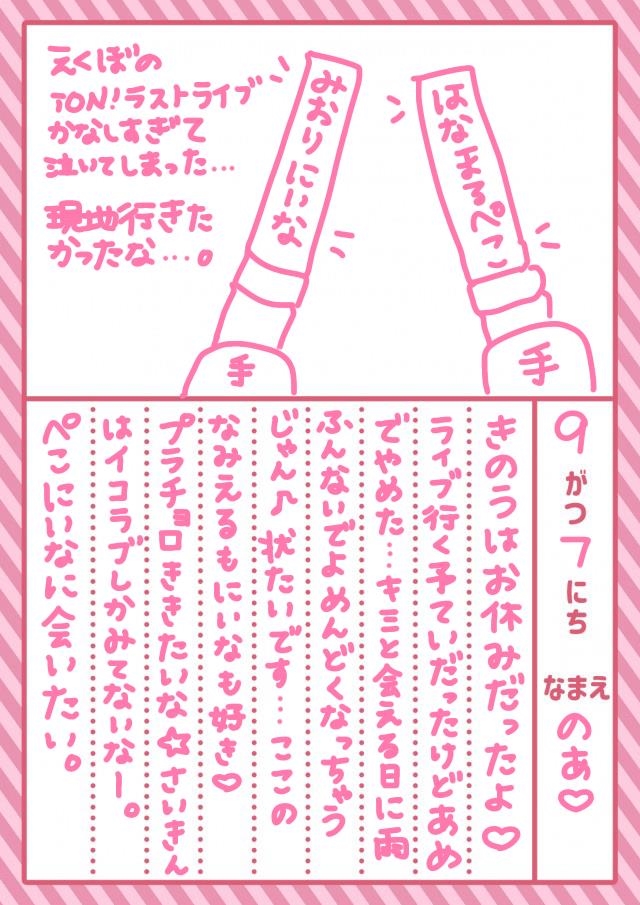 えくぼの
TON!ラストライブ
かなしすぎて
泣いてしまった…
現地行きた
かったな…。
みおりにいな
はなまるぺこ
手
手
9がつ7にち なまえ のあ♡
きのうはお休みだったよ♡
ライブ行く予ていだったけどあめ
でやめた…キミと会える日に雨
ふんないでよめんどくなっちゃう
じゃん♪状たいです…ここの
なみえるもにいなも好き♡
プラチョロききたいな☆さいきん
はイコラブしかみてないなー。
ぺこにいなに会いたい。